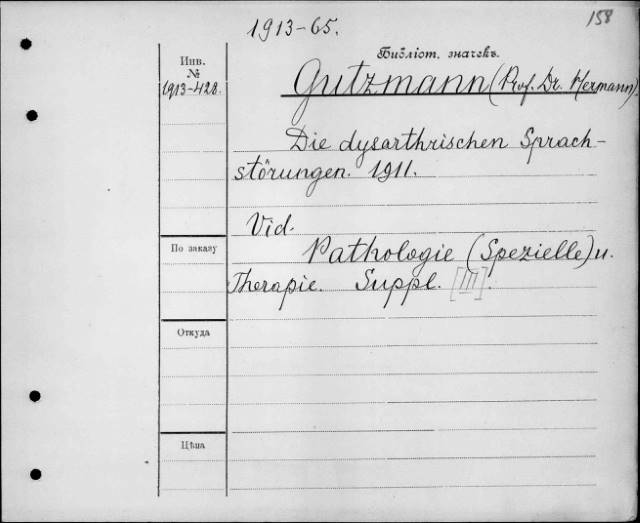 158
1913-65.
Библіот. значекъ.
Инв.
№
1913-428.
Gutzmann (Prof. Dr. Hermann).
Die dysarthrischen Sprach-
störungen. 1911.
Vid.
Pathologie (Spezielle) u.
Therapie. Suppl. [III].
По заказу
Откуда
Цѣна